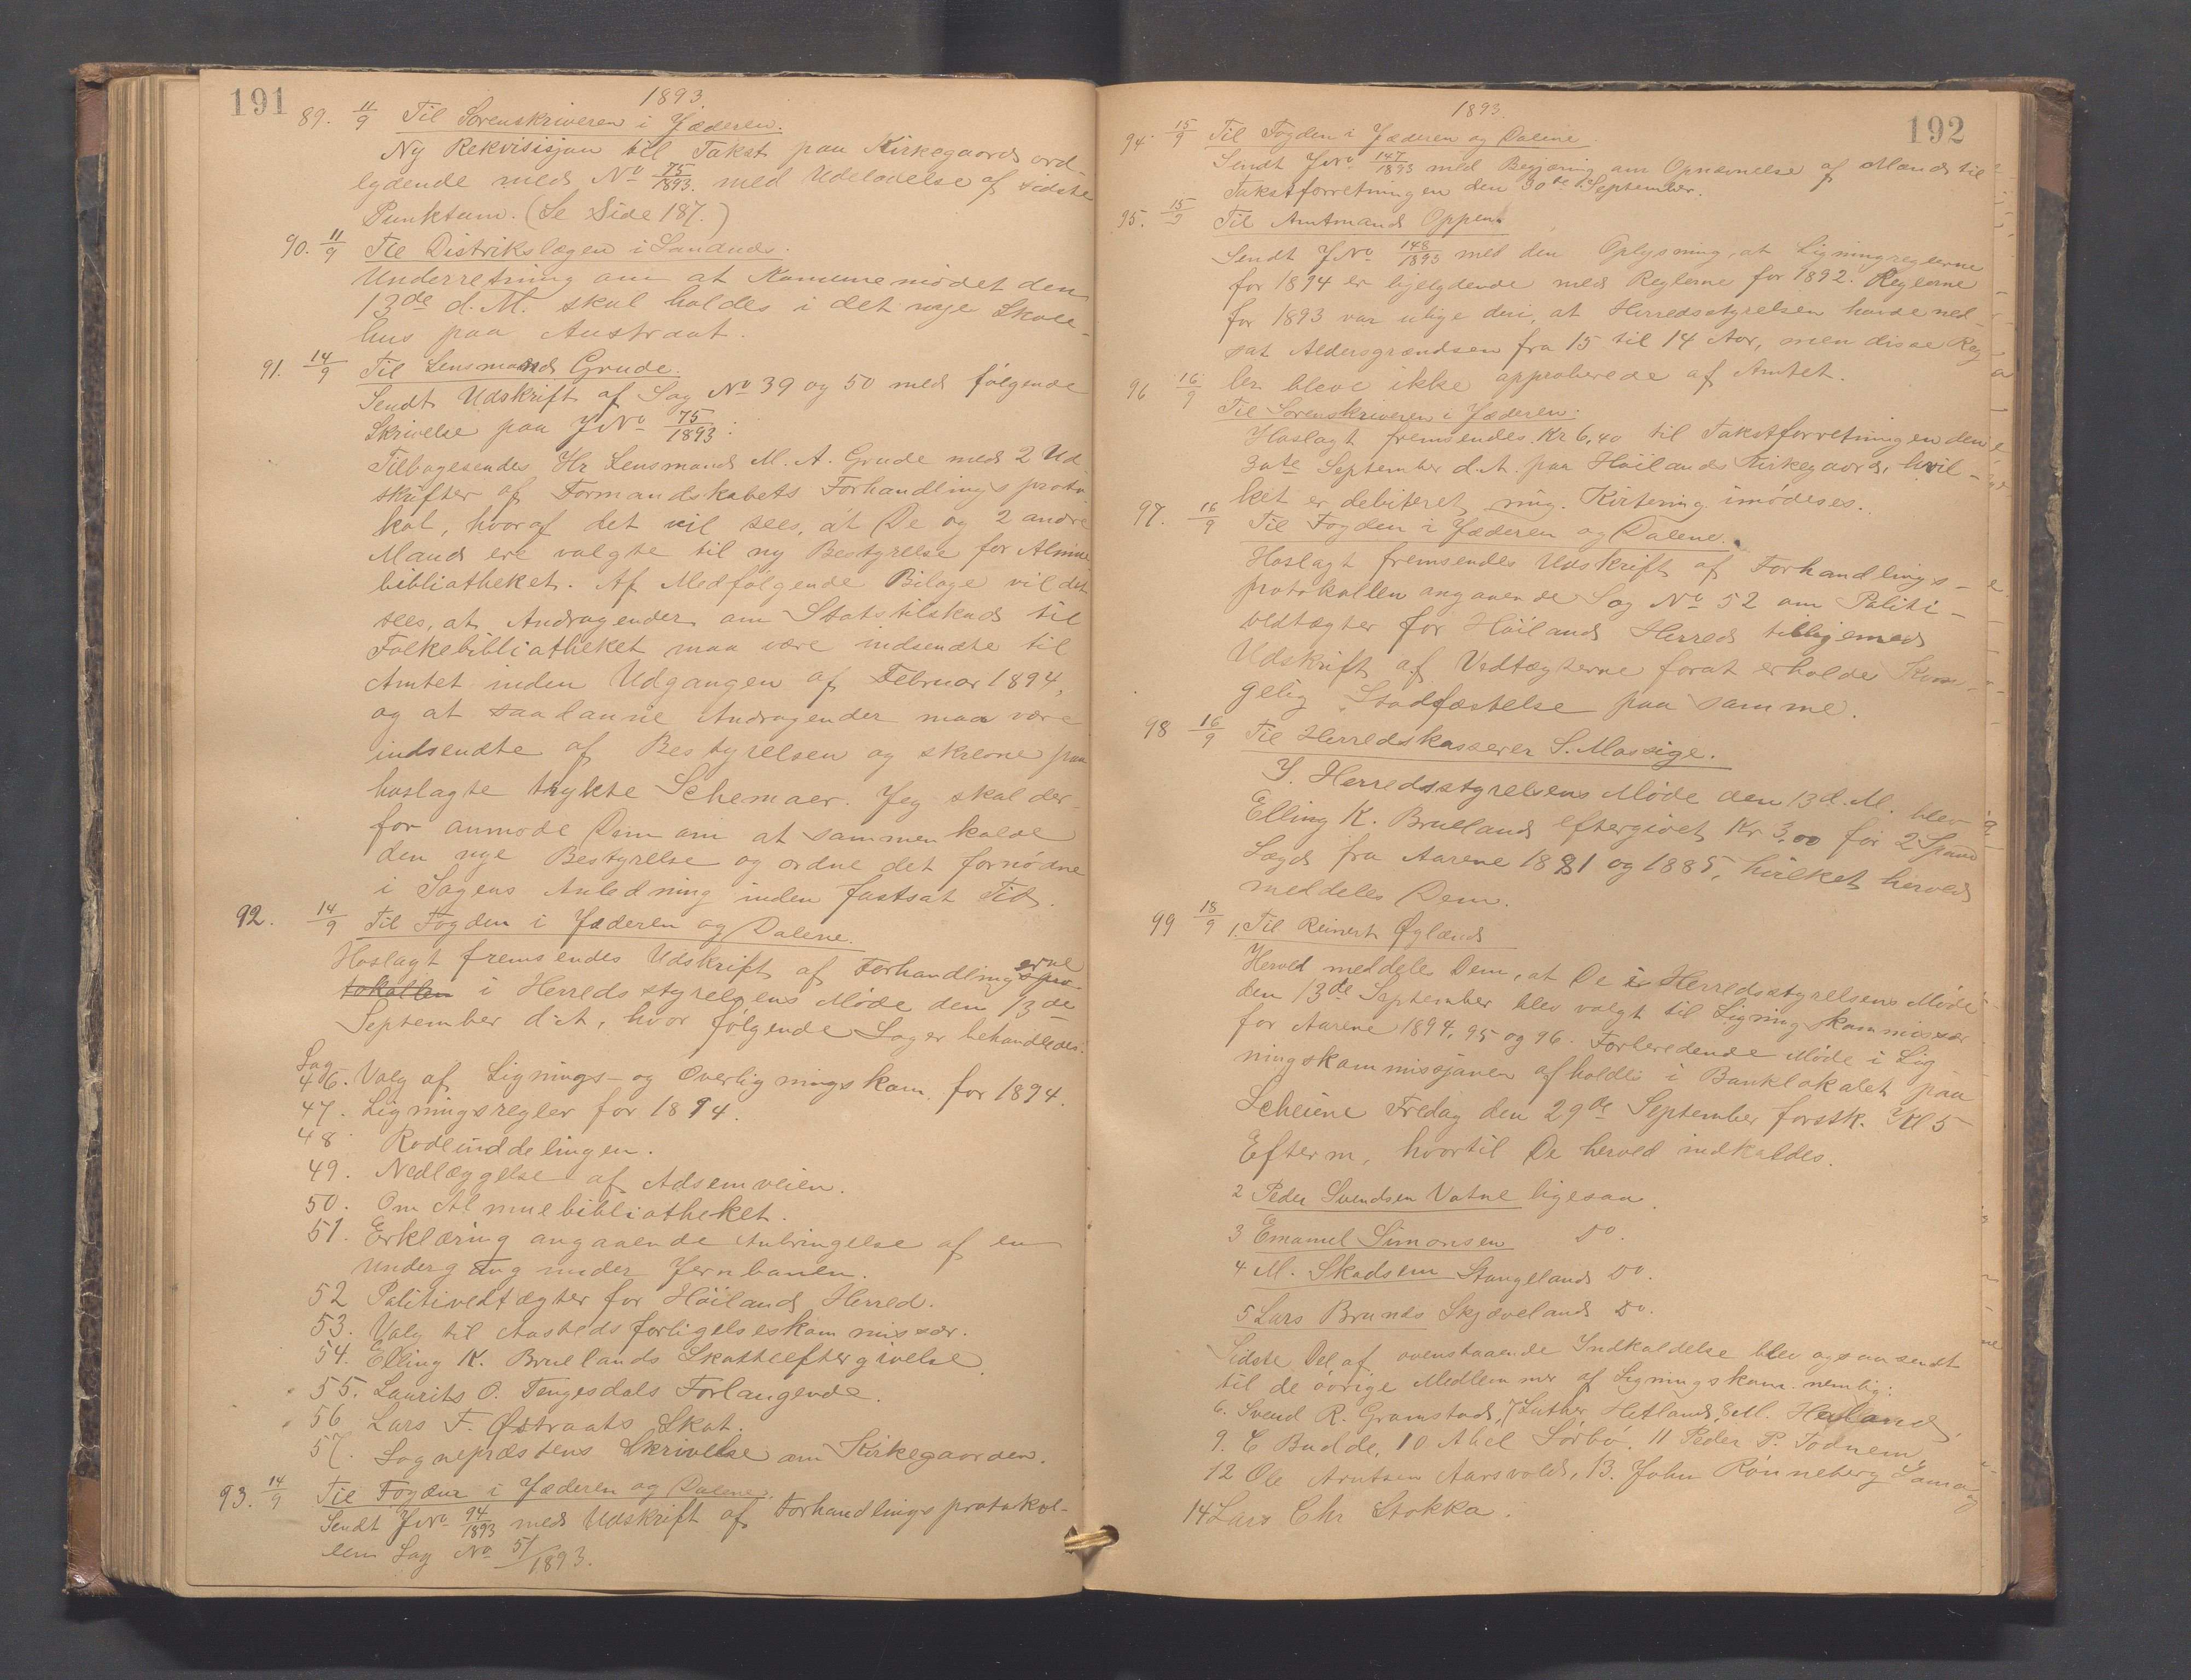 191
1893.
89. 11/9 Til Sorenskriveren i Jæderen.
Ny Rekvisisjon til Takst paa Kirkegaard ord-
lydende med No 75/1893. med Udeladelse af sidste
Punktum. (Se Side 187.)
90. 11/9 Til Distriktslægen i Sandnæs.
Underretning om at Komunemødet den
13de d. M. skal holdes i det nye Skole-
hus paa Austraat.
91. 14/9 Til Lensmand Grude.
Sendt Udskrift af Sag No 39 og 50 med følgende
Skrivelse paa J No 75/1893:
Tilbagesendes Hr Lensmand M. A. Grude med 2 Ud-
skrifter af Formandskabets Forhandlings proto-
kol, hvoraf det vil sees, at De og 2 andre
Mænd ere valgte til ny Bestyrelse for Almue
bibliotheket. Af Medfølgende Bilage vil det
sees, at Andragender om Statstilskud til
Folkebibliotheket maa være indsendte til
Amtet inden Udgangen af Februar 1894,
og at saadanne Andragender maa være
indsendte af Bestyrelsen og skrevne paa
hoslagte trykte Schemaer. Jeg skal der-
for anmode Dem om at sammenkalde
den nye Bestyrelse og ordne det fornødne
i Sagens Anledning inden fastsat Tid.
92. 14/9 Til Fogden i Jæderen og Dalene.
Hoslagt fremsendes Udskrift af Forhandlingerne spro-
tokollen i Herredsstyrelsens Møde den 13de
September d. A, hvor følgende Sager behandledes:
Sag
46. Valg af Lignings- og Overlignings kom. for 1894.
47. Ligningsregler for 1894.
48. Rodeinddelingen.
49. Nedlæggelse af Adsemveien.
50. Om Almuebibliotheket.
51. Erklæring angaaende Anbringelse af en
Undergang under Jernbanen.
52 Politivedtægter for Höiland Herred.
53. Valg til Aastedsforligelseskommissær.
54. Elling K. Bruelands Skatteeftergivelse.
55. Laurits O. Tengesdals Forlangende.
56 Lars F. Østraats Skat.
57. Sogneprestens Skrivelse om Kirkegaarden.
93. 14/9 Til Fogden i Jæderen og Dalene.
Sendt J No 94/1893 med Udskrift af Forhandlingsprotokol-
len Sag No 51/1893.
192
1893.
94. 15/9 Til Fogden i Jæderen og Dalene
Sendt J No 147/1893 med Begjæring om Opnævnelse af Mænd til
Takstforretningen den 30te September.
95. 15/9 Til Amtmand Oppen.
Sendt J No 148/1893 med den Oplysning, at Ligningreglerne
for 1894 er ligelydende med Reglerne for 1892. Reglerne
for 1893 var ulige deri, at Herredsstyrelsen havde ned-
sat Aldersgrændsen fra 15 til 14 Aar, men disse Reg
ler bleve ikke approberede af Amtet.
96 16/9 Til Sorenskriveren i Jæderen:
Hoslagt fremsendes Kr 6,40 til Takstforretningen den
30te September d. A. paa Höilands Kirkegaard, hvil-
ket er debiteret mig. Kvitering imødeses.
97. 16/9 Til Fogden i Jæderen og Dalene.
Hoslagt fremsendes Udskrift af Forhandlings-
protokollen angaaende Sag No 52 om Politi-
vedtægter for Höiland Herred tilligemed
Udskrift af Vedtægterne forat erholde Kon-
gelig Stadfæstelse paa samme.
98 16/9 Til Herredskasserer S. Mossige.
I Herredsstyrelsens Møde den 13 d. M. blev
Elling K. Brueland eftergivet Kr 3,00 for 2 Spand
Lægd fra Aarene 1881 og 1885, hvilket herved
meddeles Dem.
99 18/9 1. Til Reinert Øgland
Herved meddeles Dem, at De i Herredsstyrelsens Møde
den 13de September blev valgt til Ligningskommissær
for Aarene 1894, 95 og 96. Forberedende Møde i Lig
ningskommissjonen afholdes i Banklokalet paa
Scheiene Fredag den 29de September førstk. Kl 5
Efterm, hvortil De herved indkaldes.
2 Peder Svendsen Vatne ligesaa.
3 Emanuel Simonsen Do.
4 M. Skadsem Stangeland Do.
5 Lars Brunes Skjæveland Do.
Sidste Del af ovenstaaende Indkaldelse blev ogsaa sendt
til de övrige Medlemmer af Ligningskom. nemlig:
6. Svend R. Gramstad, 7 Luther Hetland, 8 M. Hasland,
9. C Budde, 10 Abel Sörbö, 11 Peder P. Todnem,
12 Ole Arntsen Aarsvold, 13. John Rönneberg Lama og
14 Lars Chr Stokka.